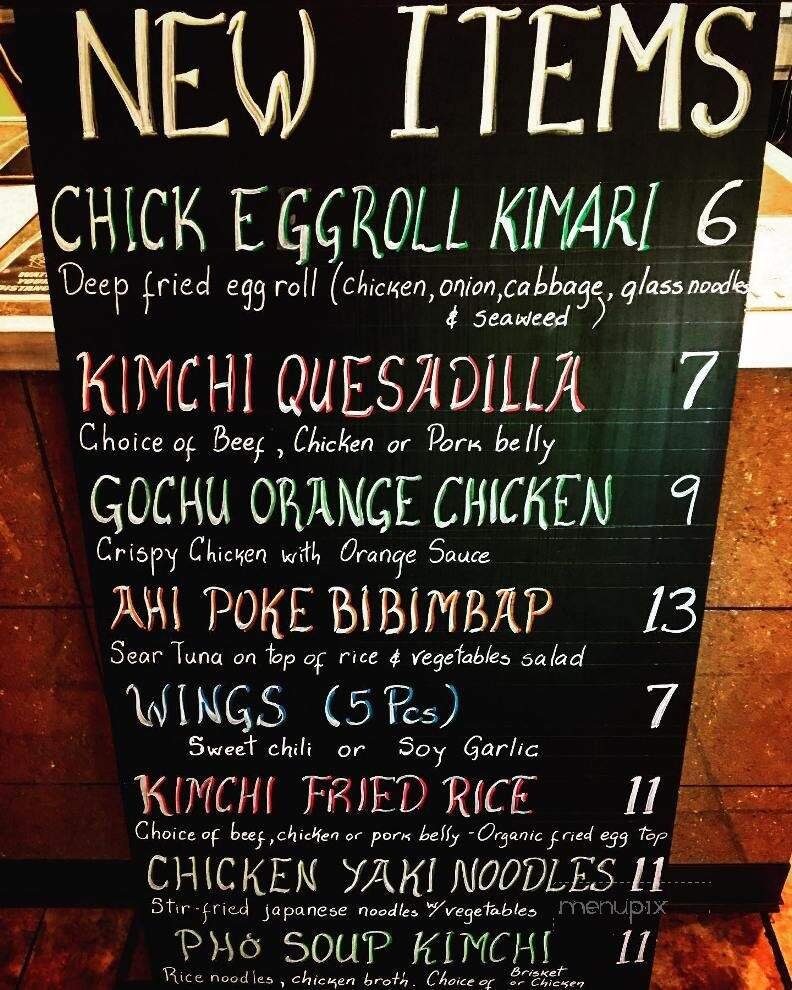 NEW ITEMS
CHICK EGGROLL KIMARI 6
Deep fried egg roll (chicken, onion, cabbage, glass noodles
& seaweed )
KIMCHI QUESADILLA 7
Choice of Beef, Chicken or Pork belly
GOCHU ORANGE CHICKEN 9
Crispy Chicken with Orange Sauce
AHI POKE BIBIMBAP 13
Sear Tuna on top of rice & vegetables salad
WINGS (5 Pcs) 7
Sweet chili or Soy Garlic
KIMCHI FRIED RICE 11
Choice of beef, chicken or pork belly - Organic fried egg top
CHICKEN YAKI NOODLES 11
Stir-fried japanese noodles w/ vegetables
menupix
PHO SOUP KIMCHI 11
Rice noodles, chicken broth. Choice of Brisket
or Chicken